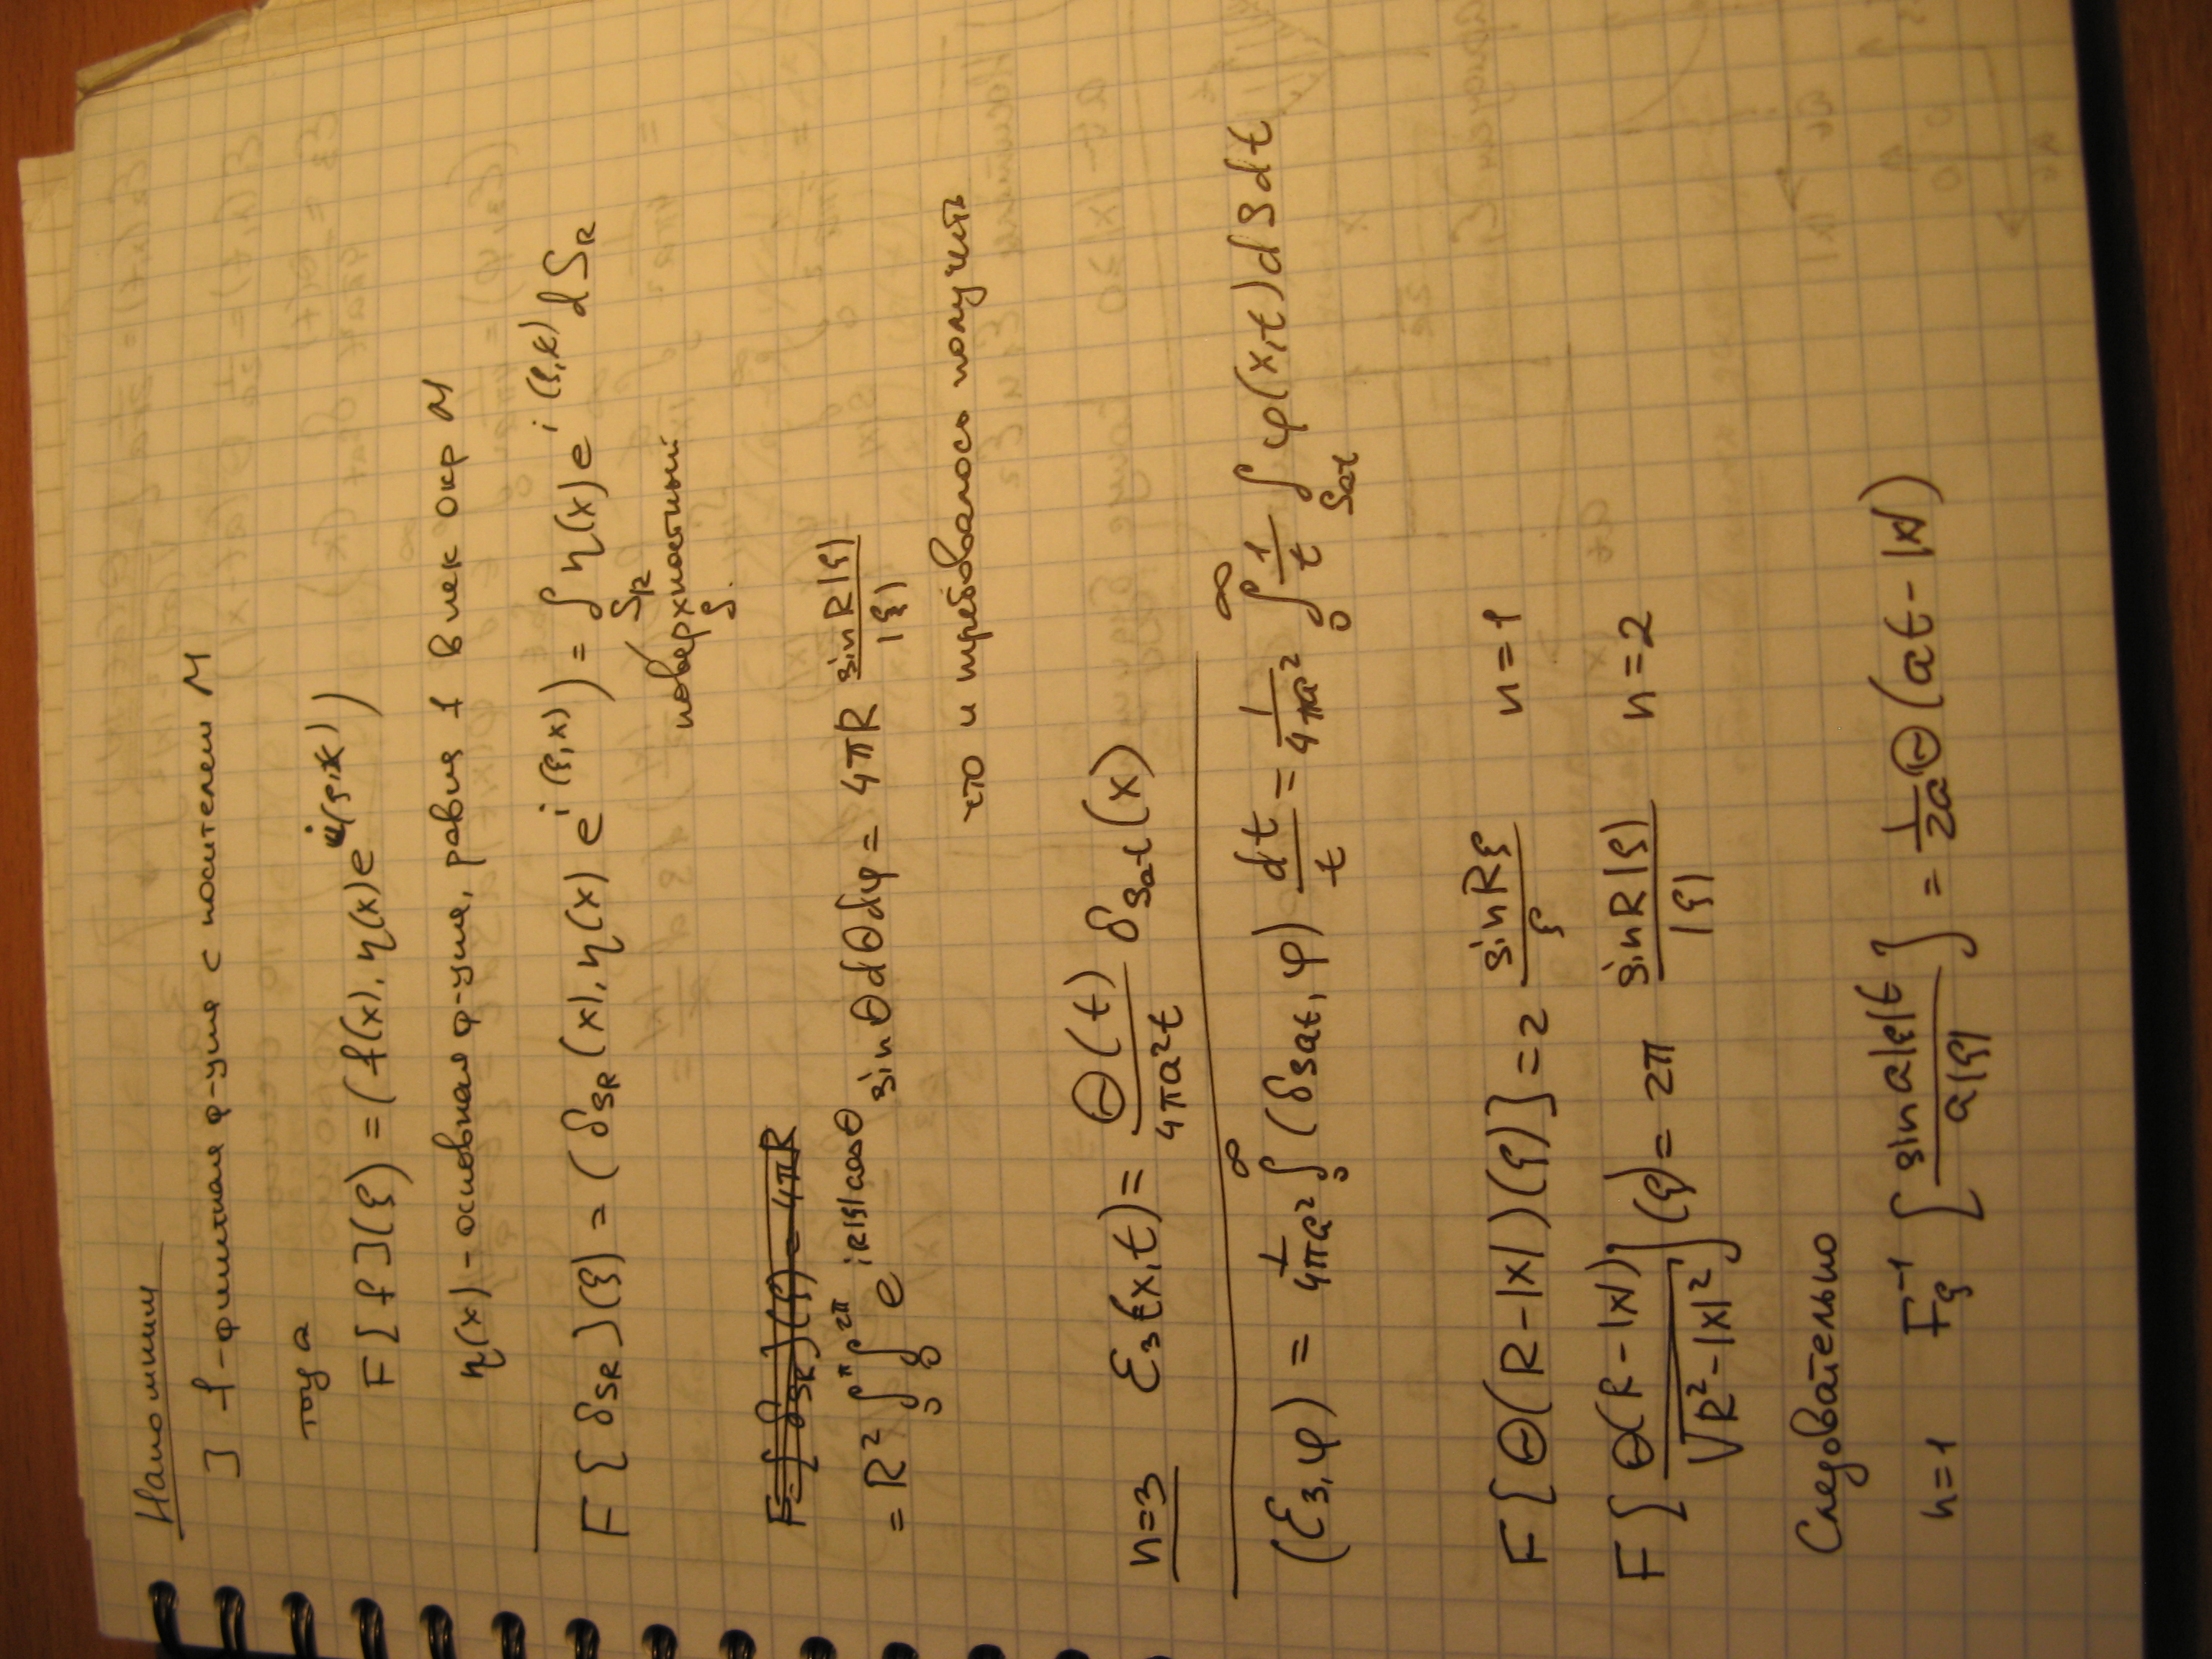 Напомним
] f - финитная ф-ция с носителем M
тогда
F[f](ξ) = (f(x), η(x)e^{i(ξ,x)})
η(x) - основная ф-ция, равна 1 в нек окр M
F[δ_{S_R}](ξ) = (δ_{S_R}(x), η(x) e^{i(ξ,x)}) = ∫_{S_R} η(x) e^{i(ξ,x)} dS_R
поверхностный
∫.
F[δ_{S_R}](ξ) = 4πR
= R² ∫_0^π ∫_0^{2π} e^{iR|ξ|cosθ} sinθ dθ dφ = 4πR \frac{sinR|ξ|}{|ξ|}
что и требовалось получить
n=3 ℰ_3(x,t) = \frac{Θ(t)}{4πa²t} δ_{S_{at}}(x)
(ℰ_3,φ) = \frac{1}{4πa²} ∫_0^∞ (δ_{S_{at}},φ) \frac{dt}{t} = \frac{1}{4πa²} ∫_0^∞ \frac{1}{t} ∫_{S_{at}} φ(x,t) dS dt
F[Θ(R-|x|)(ξ)] = 2 \frac{sinRξ}{ξ} n=1
F[\frac{Θ(R-|x|)}{√(R²-|x|²)}](ξ) = 2π \frac{sinR|ξ|}{|ξ|} n=2
Следовательно
n=1 F_ξ^{-1}[\frac{sin a|ξ|t}{a|ξ|}] = \frac{1}{2a} Θ(at-|x|)